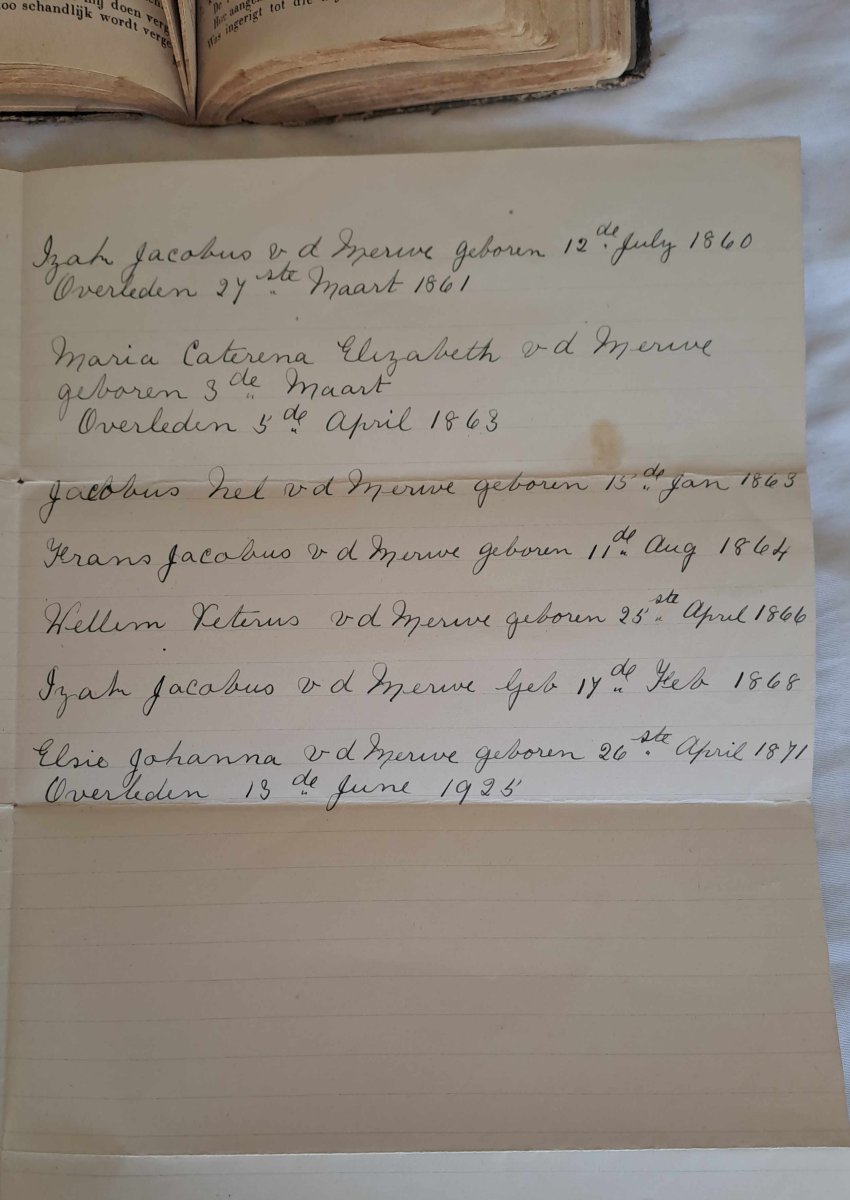 doen verg
oo schandlijk wordt verge
De
Hoe aange
Was ingerigt tot die
Izak Jacobus v d Merwe geboren 12de July 1860
Overleden 27ste Maart 1861
Maria Caterena Elizabeth v d Merwe
geboren 3de Maart
Overleden 5de April 1863
Jacobus Nel v d Merwe geboren 15de Jan 1863
Frans Jacobus v d Merwe geboren 11de Aug 1864
Wellem Peterus v d Merwe geboren 25ste April 1866
Izak Jacobus v d Merwe Geb 17de Feb 1868
Elsie Johanna v d Merwe geboren 26ste April 1871
Overleden 13de June 1925